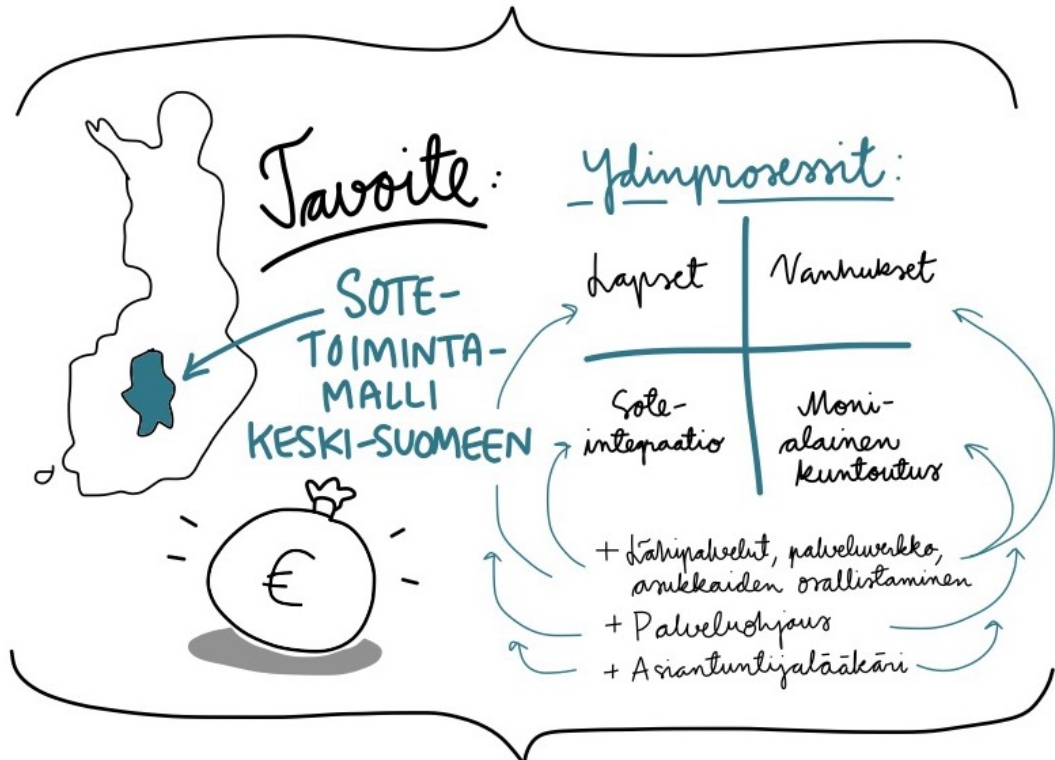 Tavoite:
SOTE-
TOIMINTA-
MALLI
KESKI-SUOMEEN
€
Ydinprosessit:
Lapset
Vanhukset
Sote-
integraatio
Moni-
alainen
kuntoutus
+ Lähipalvelut, palveluverkko,
asukkaiden osallistaminen
+ Palveluohjaus
+ Asiantuntijalääkäri